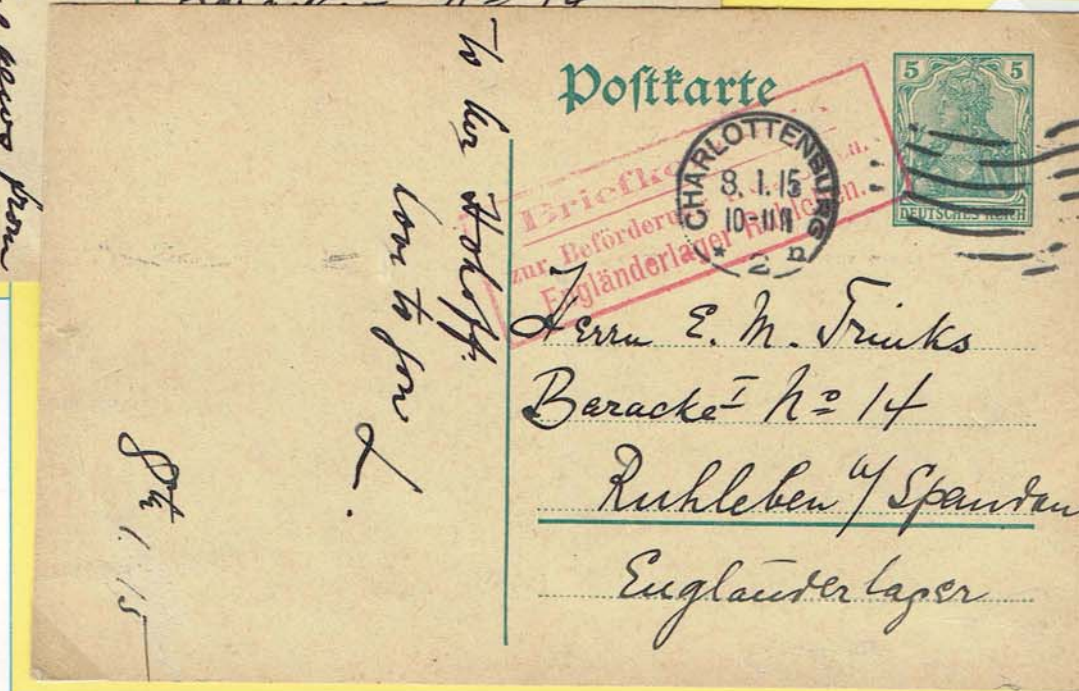 Postkarte
5 5
DEUTSCHES REICH
CHARLOTTENBURG
8.1.15
10-11
* 2 n
zur Beförderung
Engländerlager Ruhleben.
Herrn E. M. Trinks
Baracke I No 14
Ruhleben a/ Spandau
Engländerlager
to
love to you
L.
8th 1. 15
from